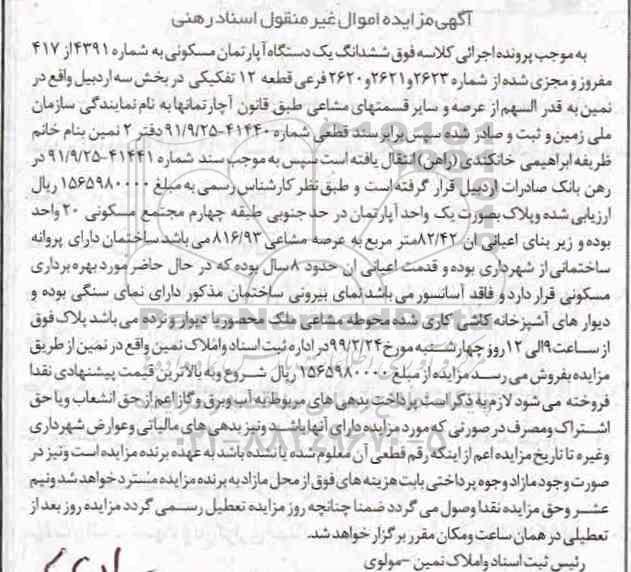 آگهی مزایده اموال غیر منقول اسناد رهنی
به موجب پرونده اجرائی کلاسه فوق ششدانگ یک دستگاه آپارتمان مسکونی به شماره ۴۳۹۱ از ۴۱۷
مفروز و مجزی شده از شماره ۲۶۲۳ و ۲۶۲۱ و ۲۶۲۰ فرعی قطعه ۱۲ تفکیکی در بخش سه اردبیل واقع در
نمین به قدر السهم از عرصه و سایر قسمتهای مشاعی طبق قانون آچارتمانها به نام نمایندگی سازمان
ملی زمین و ثبت و صادر شده سپس برابر سند قطعی شماره ۴۱۴۴۰-۹۱/۹/۲۵ دفتر ۲ نمین بنام خانم
ظریفه ابراهیمی خانکندی (راهن) انتقال یافته است سپس به موجب سند شماره ۴۱۴۴۱-۹۱/۹/۲۵ در
رهن بانک صادرات اردبیل قرار گرفته است و طبق نظر کارشناس رسمی به مبلغ ۱۵۶۵۹۸۰۰۰۰ ریال
ارزیابی شده و پلاک بصورت یک واحد آپارتمان در حد جنوبی طبقه چهارم مجتمع مسکونی ۲۰ واحد
بوده و زیر بنای اعیانی ان ۸۲/۴۲ متر مربع به عرصه مشاعی ۸۱۶/۹۳ می باشد ساختمان دارای پروانه
ساختمانی از شهرداری بوده و قدمت اعیانی ان حدود ۸ سال بوده که در حال حاضر مورد بهره برداری
مسکونی قرار دارد و فاقد آسانسور می باشد نمای بیرونی ساختمان مذکور دارای نمای سنگی بوده و
دیوار های آشپزخانه کاشی کاری شده محوطه مشاعی ملک محصور با دیوار و نرده می باشد پلاک فوق
از ساعت ۹ الی ۱۲ روز چهارشنبه مورخ ۹۹/۲/۲۴ در اداره ثبت اسناد و املاک نمین واقع در نمین از طریق
مزایده بفروش می رسد مزایده از مبلغ ۱۵۶۵۹۸۰۰۰۰ ریال شروع و به بالاترین قیمت پیشنهادی نقدا
فروخته می شود لازم به ذکر است پرداخت بدهی های مربوط به آب و برق و گاز اعم از حق انشعاب و یا حق
اشتراک و مصرف در صورتی که مورد مزایده دارای آنها باشد و نیز بدهی های مالیاتی و عوارض شهرداری
و غیره تا تاریخ مزایده اعم از اینکه رقم قطعی آن معلوم شده یا نشده باشد به عهده برنده مزایده است و نیز در
صورت وجود مازاد وجوه پرداختی بابت هزینه های فوق از محل مازاد به برنده مزایده مسترد خواهد شد و نیم
عشر و حق مزایده نقدا وصول می گردد ضمنا چنانچه روز مزایده تعطیل رسمی گردد مزایده روز بعد از
تعطیلی در همان ساعت و مکان مقرر برگزار خواهد شد.
رئیس ثبت اسناد و املاک نمین - مولوی
ParsNamadData
۰۲۱-۸۸۳۴۹۶۷۰-۵